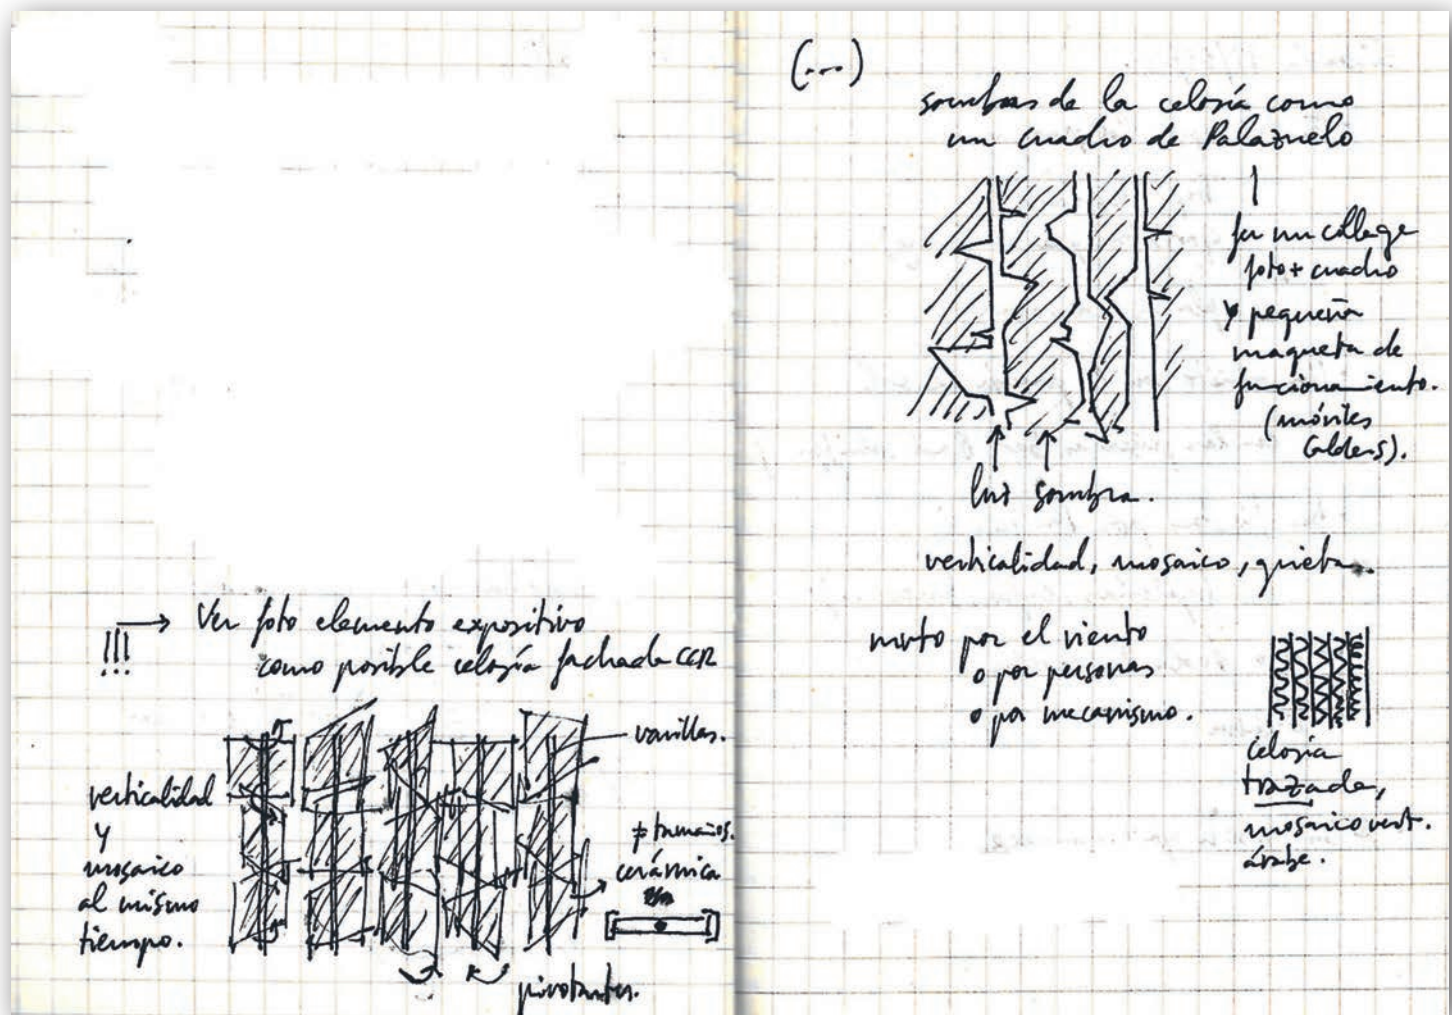 !!! → Ver foto elemento expositivo
como posible celosía fachada CCR
varillas.
verticalidad
y
mosaico
al mismo
tiempo.
≠ tamaños.
cerámica
pivotantes.
(...)
sombras de la celosía como
un cuadro de Palazuelo
un collage
foto + cuadro
y pequeña
maqueta de
funcionamiento.
(móviles
Calders).
luz sombra.
verticalidad, mosaico, grieta.
mvto por el viento
o por personas
o por mecanismo.
celosía
trazada,
mosaico vert.
árabe.